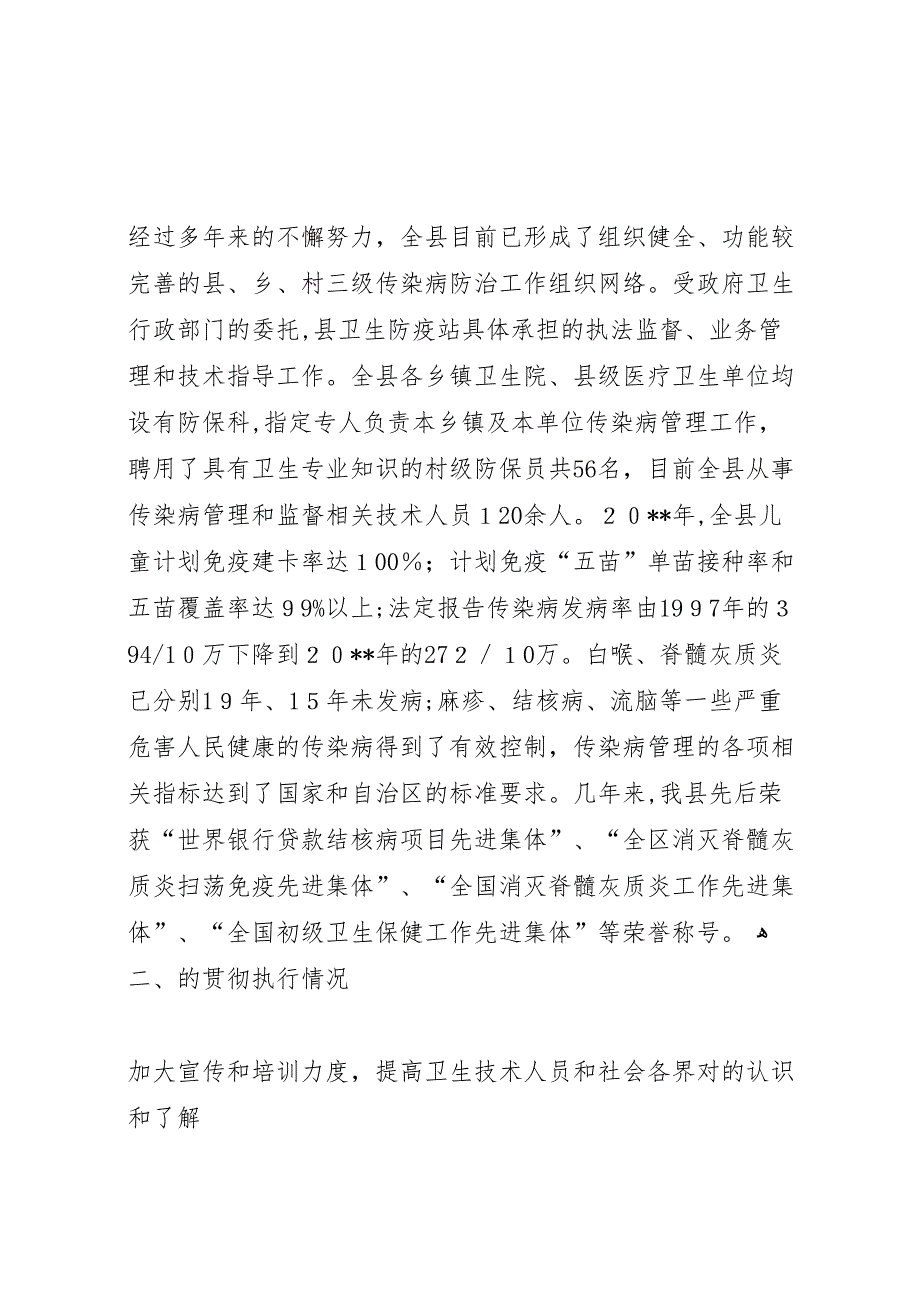 经过多年来的不懈努力，全县目前已形成了组织健全、功能较
完善的县、乡、村三级传染病防治工作组织网络。受政府卫生
行政部门的委托,县卫生防疫站具体承担的执法监督、业务管
理和技术指导工作。全县各乡镇卫生院、县级医疗卫生单位均
设有防保科,指定专人负责本乡镇及本单位传染病管理工作，
聘用了具有卫生专业知识的村级防保员共56名，目前全县从事
传染病管理和监督相关技术人员１20余人。２０**年,全县儿
童计划免疫建卡率达１00％；计划免疫“五苗”单苗接种率和
五苗覆盖率达９9%以上;法定报告传染病发病率由19９7年的３
94/1０万下降到２０**年的27２／１0万。白喉、脊髓灰质炎
已分别1９年、1５年未发病;麻疹、结核病、流脑等一些严重
危害人民健康的传染病得到了有效控制，传染病管理的各项相
关指标达到了国家和自治区的标准要求。几年来,我县先后荣
获“世界银行贷款结核病项目先进集体”、“全区消灭脊髓灰
质炎扫荡免疫先进集体”、“全国消灭脊髓灰质炎工作先进集
体”、“全国初级卫生保健工作先进集体”等荣誉称号。 ﻬ
二、的贯彻执行情况
加大宣传和培训力度，提高卫生技术人员和社会各界对的认识
和了解